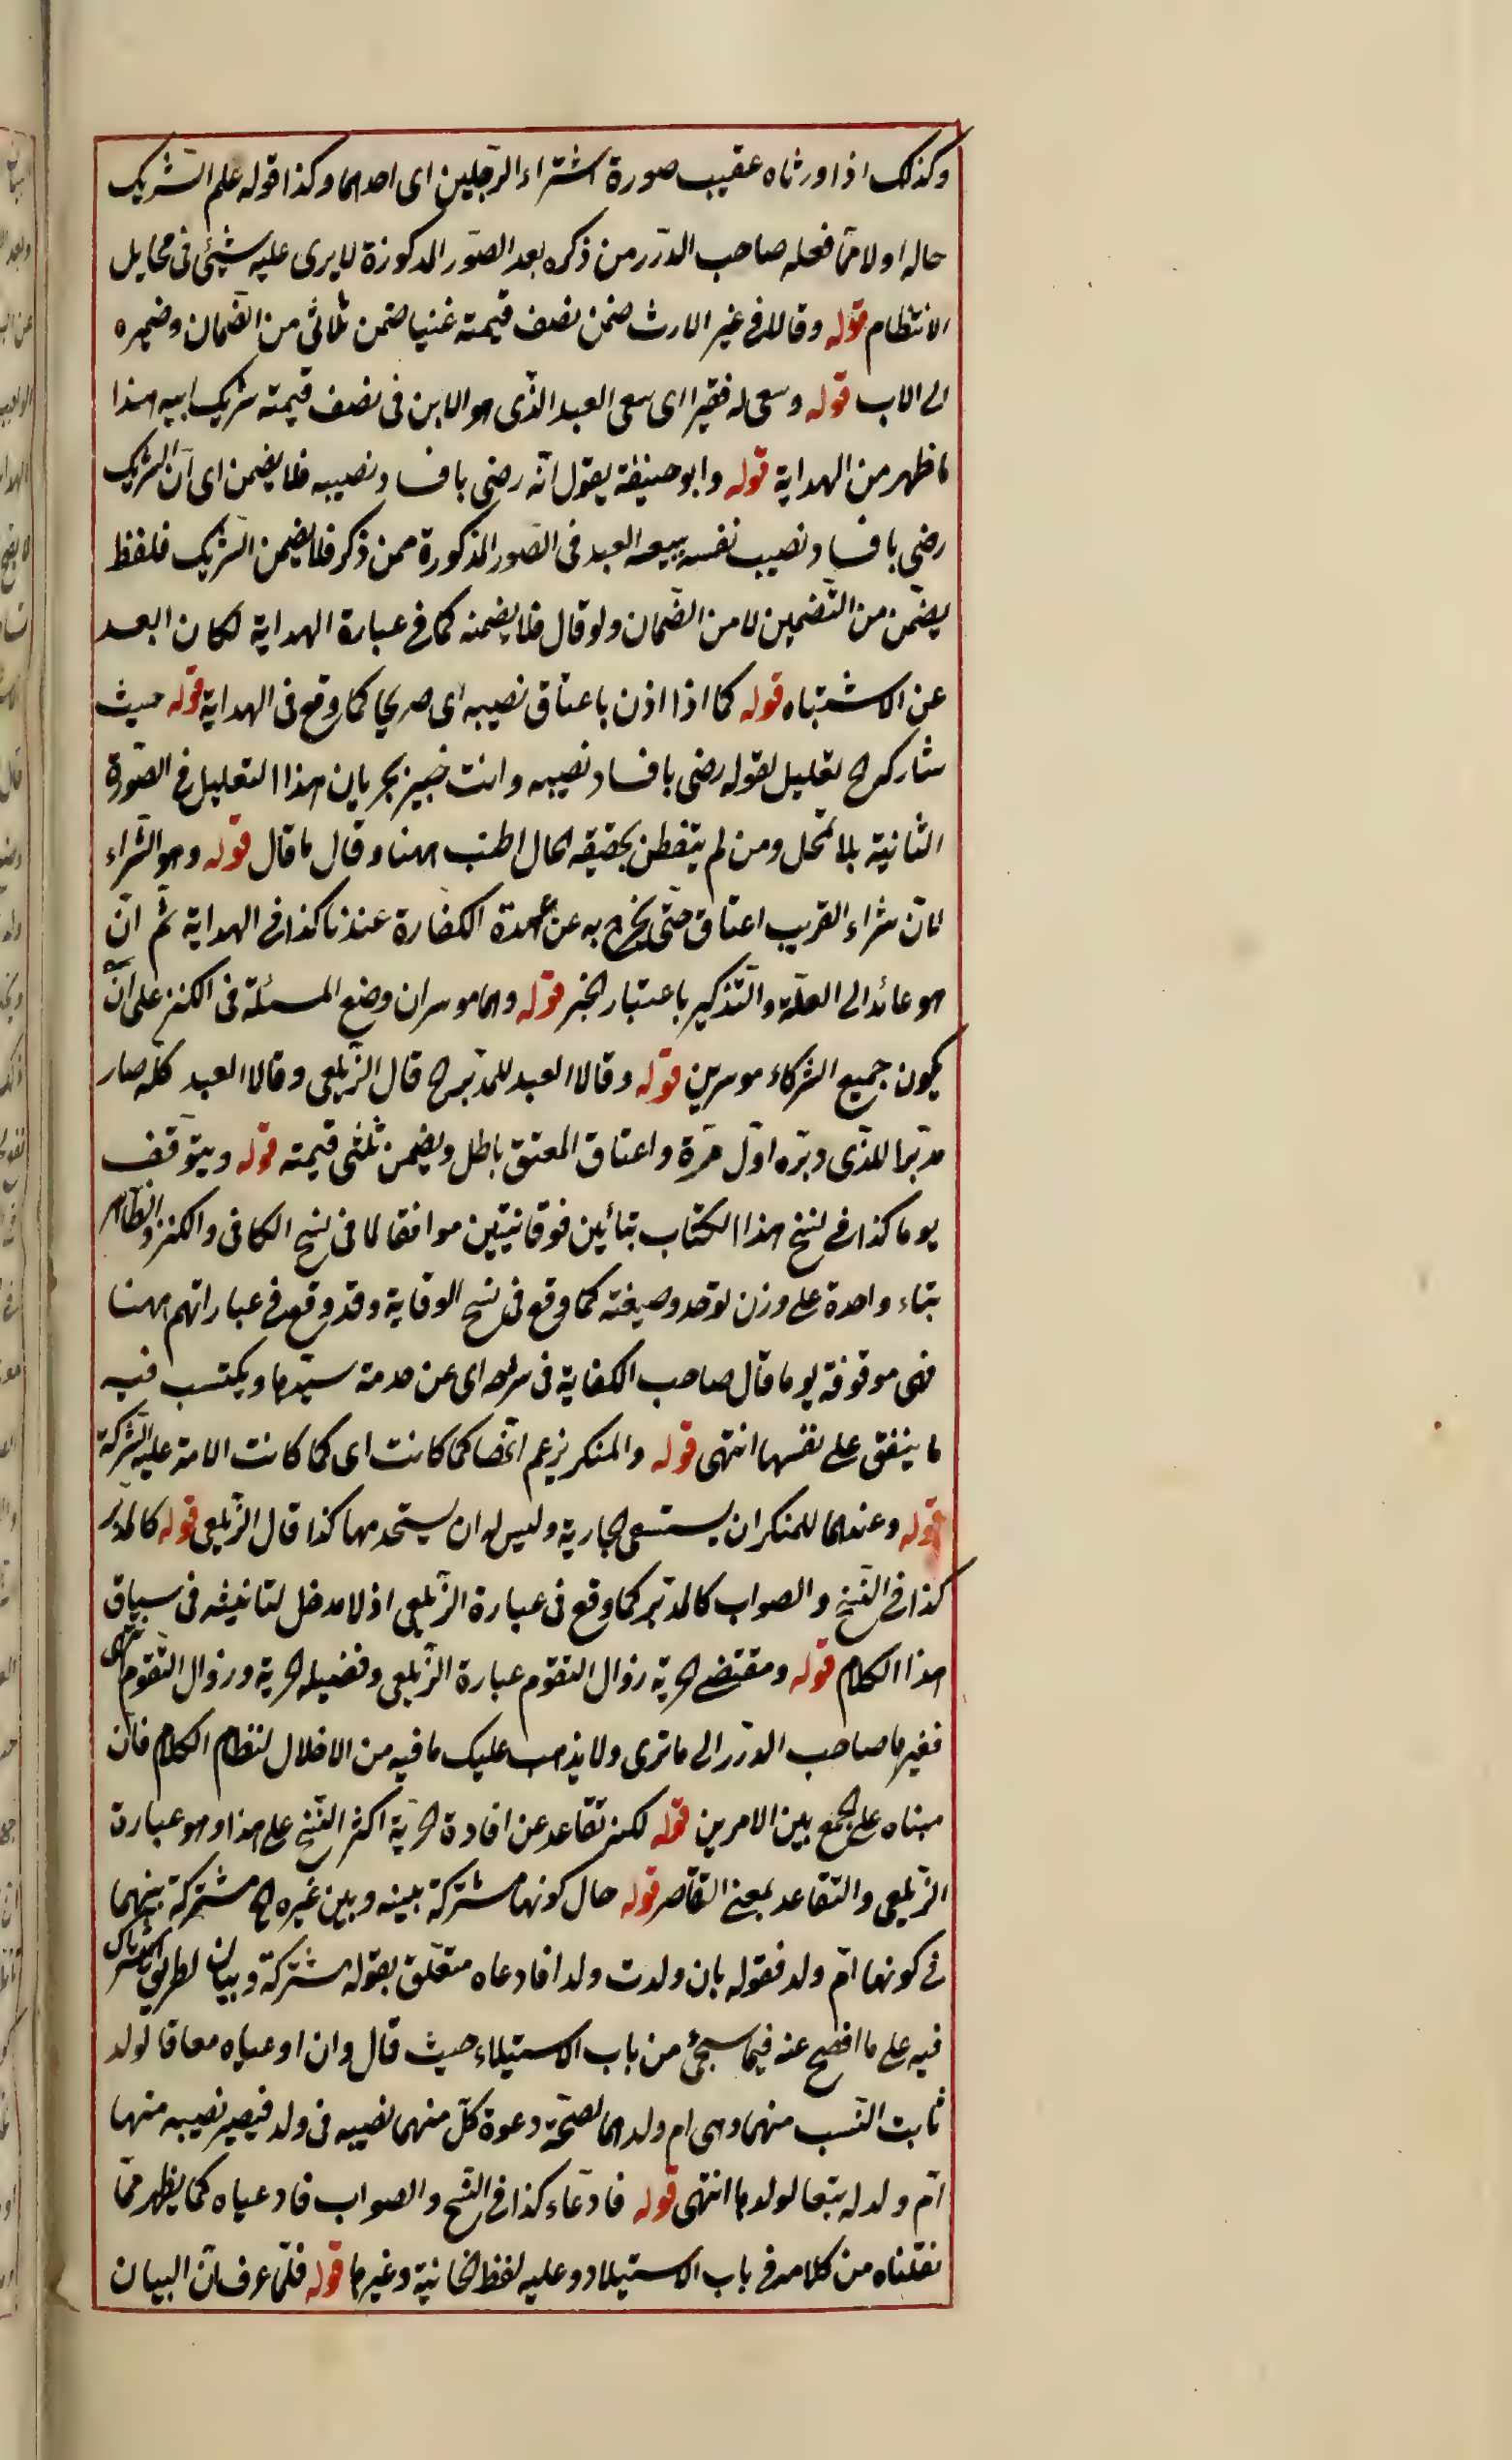 وكذلك اذا ورثاه عقيب صورة اشتراء الرجلين اى احدهما وكذا قوله علم الشريك
حاله اولا مما فعله صاحب الدرر من ذكره بعد الصور المذكورة لا يرى عليه شيئ فى مخايل
الانتظام قوله وقالا فى غير الارث ضمن نصف قيمته غنيا ضمن ثلاثى من الضمان وضميره
الى الاب قوله وسعى له فقيرا اى سعى العبد الذى هو الابن فى نصف قيمته شريك ابيه هذا
ما ظهر من الهداية قوله وابو حنيفة يقول انه رضى بافساد نصيبه فلا يضمن اى ان الشريك
رضى بافساد نصيب نفسه ببيعه العبد فى الصور المذكورة ممن ذكر فلا يضمن الشريك فلفظ
يضمن من التضمين لا من الضمان ولو قال فلا يضمنه كما فى عبارة الهداية لكان ابعد
عن الاشتباه قوله كما اذا اذن باعتاق نصيبه اى صريحا كما وقع فى الهداية قوله حيث
شاركه الخ تعليل لقوله رضى بافساد نصيبه وانت خبير بجريان هذا التعليل فى الصورة
الثانية بلا تمحل ومن لم يتفطن بحقيقة الحال اطنب ههنا وقال ما قال قوله وهو الشراء
لان شراء القريب اعتاق حتى يخرج به عن عهدة الكفارة عندنا كذا فى الهداية ثم ان
هو عائد الى العلة والتذكير باعتبار الخبر قوله وهما موسران وضع المسئلة فى الكنز على ان
يكون جميع الشركاء موسرين قوله وقالا العبد للمدبر الخ قال الزيلعى وقالا العبد كله صار
مدبرا للذى دبره اول مرة واعتاق المعتق باطل ويضمن ثلثى قيمته قوله ويتوقف
يوما كذا فى نسخ هذا الكتاب بتائين فوقانيتين موافقا لما فى نسخ الكافى والكنز والظاهر
بتاء واحدة على وزن توحد وصيغته كما وقع فى نسخ الوقاية وقد وقع فى عباراتهم ههنا
فهى موقوفة يوما قال صاحب الكفاية فى شرحه اى عن خدمة سيدها ويكتسب فيه
ما ينفق على نفسها انتهى قوله والمنكر يزعم انها كما كانت اى كما كانت الامة عليه الشركة
قوله وعندهما للمنكر ان يستسعى الجارية وليس له ان يستخدمها كذا قال الزيلعى قوله كالمدبر
كذا فى النسخ والصواب كالمدبر كما وقع فى عبارة الزيلعى اذ لا مدخل لتانيثه فى سياق
هذا الكلام قوله ومقتضى الحرية زوال التقوم عبارة الزيلعى وقضية الحرية وزوال التقوم انتهى
فغيرها صاحب الدرر الى ما ترى ولا يذهب عليك ما فيه من الاخلال لنظام الكلام فان
مبناه على الجمع بين الامرين قوله لكنز تقاعد عن افادة الحرية اكثر النسخ على هذا وهو عبارة
الزيلعى والتقاعد بمعنى التقاصر قوله حال كونها مشتركة بينه وبين غيره الخ مشتركة بينهما
فى كونها ام ولد فقوله بان ولدت ولدا فادعاه متعلق بقوله مشتركة وبيان لطريق الاشتراك
فيه على ما افصح عنه فيما سيجئ من باب الاستيلاء حيث قال وان ادعياه معا فالولد
ثابت النسب منهما وهى ام ولد لهما لصحة دعوة كل منهما نصيبه فى ولد فيصير نصيبه منها
ام ولد له تبعا لولدها انتهى قوله فادعاء كذا فى النسخ والصواب فادعياه كما يظهر مما
نقلناه من كلامه فى باب الاستيلاد وعليه لفظ الخانية وغيرها قوله فلما عرف ان البيان